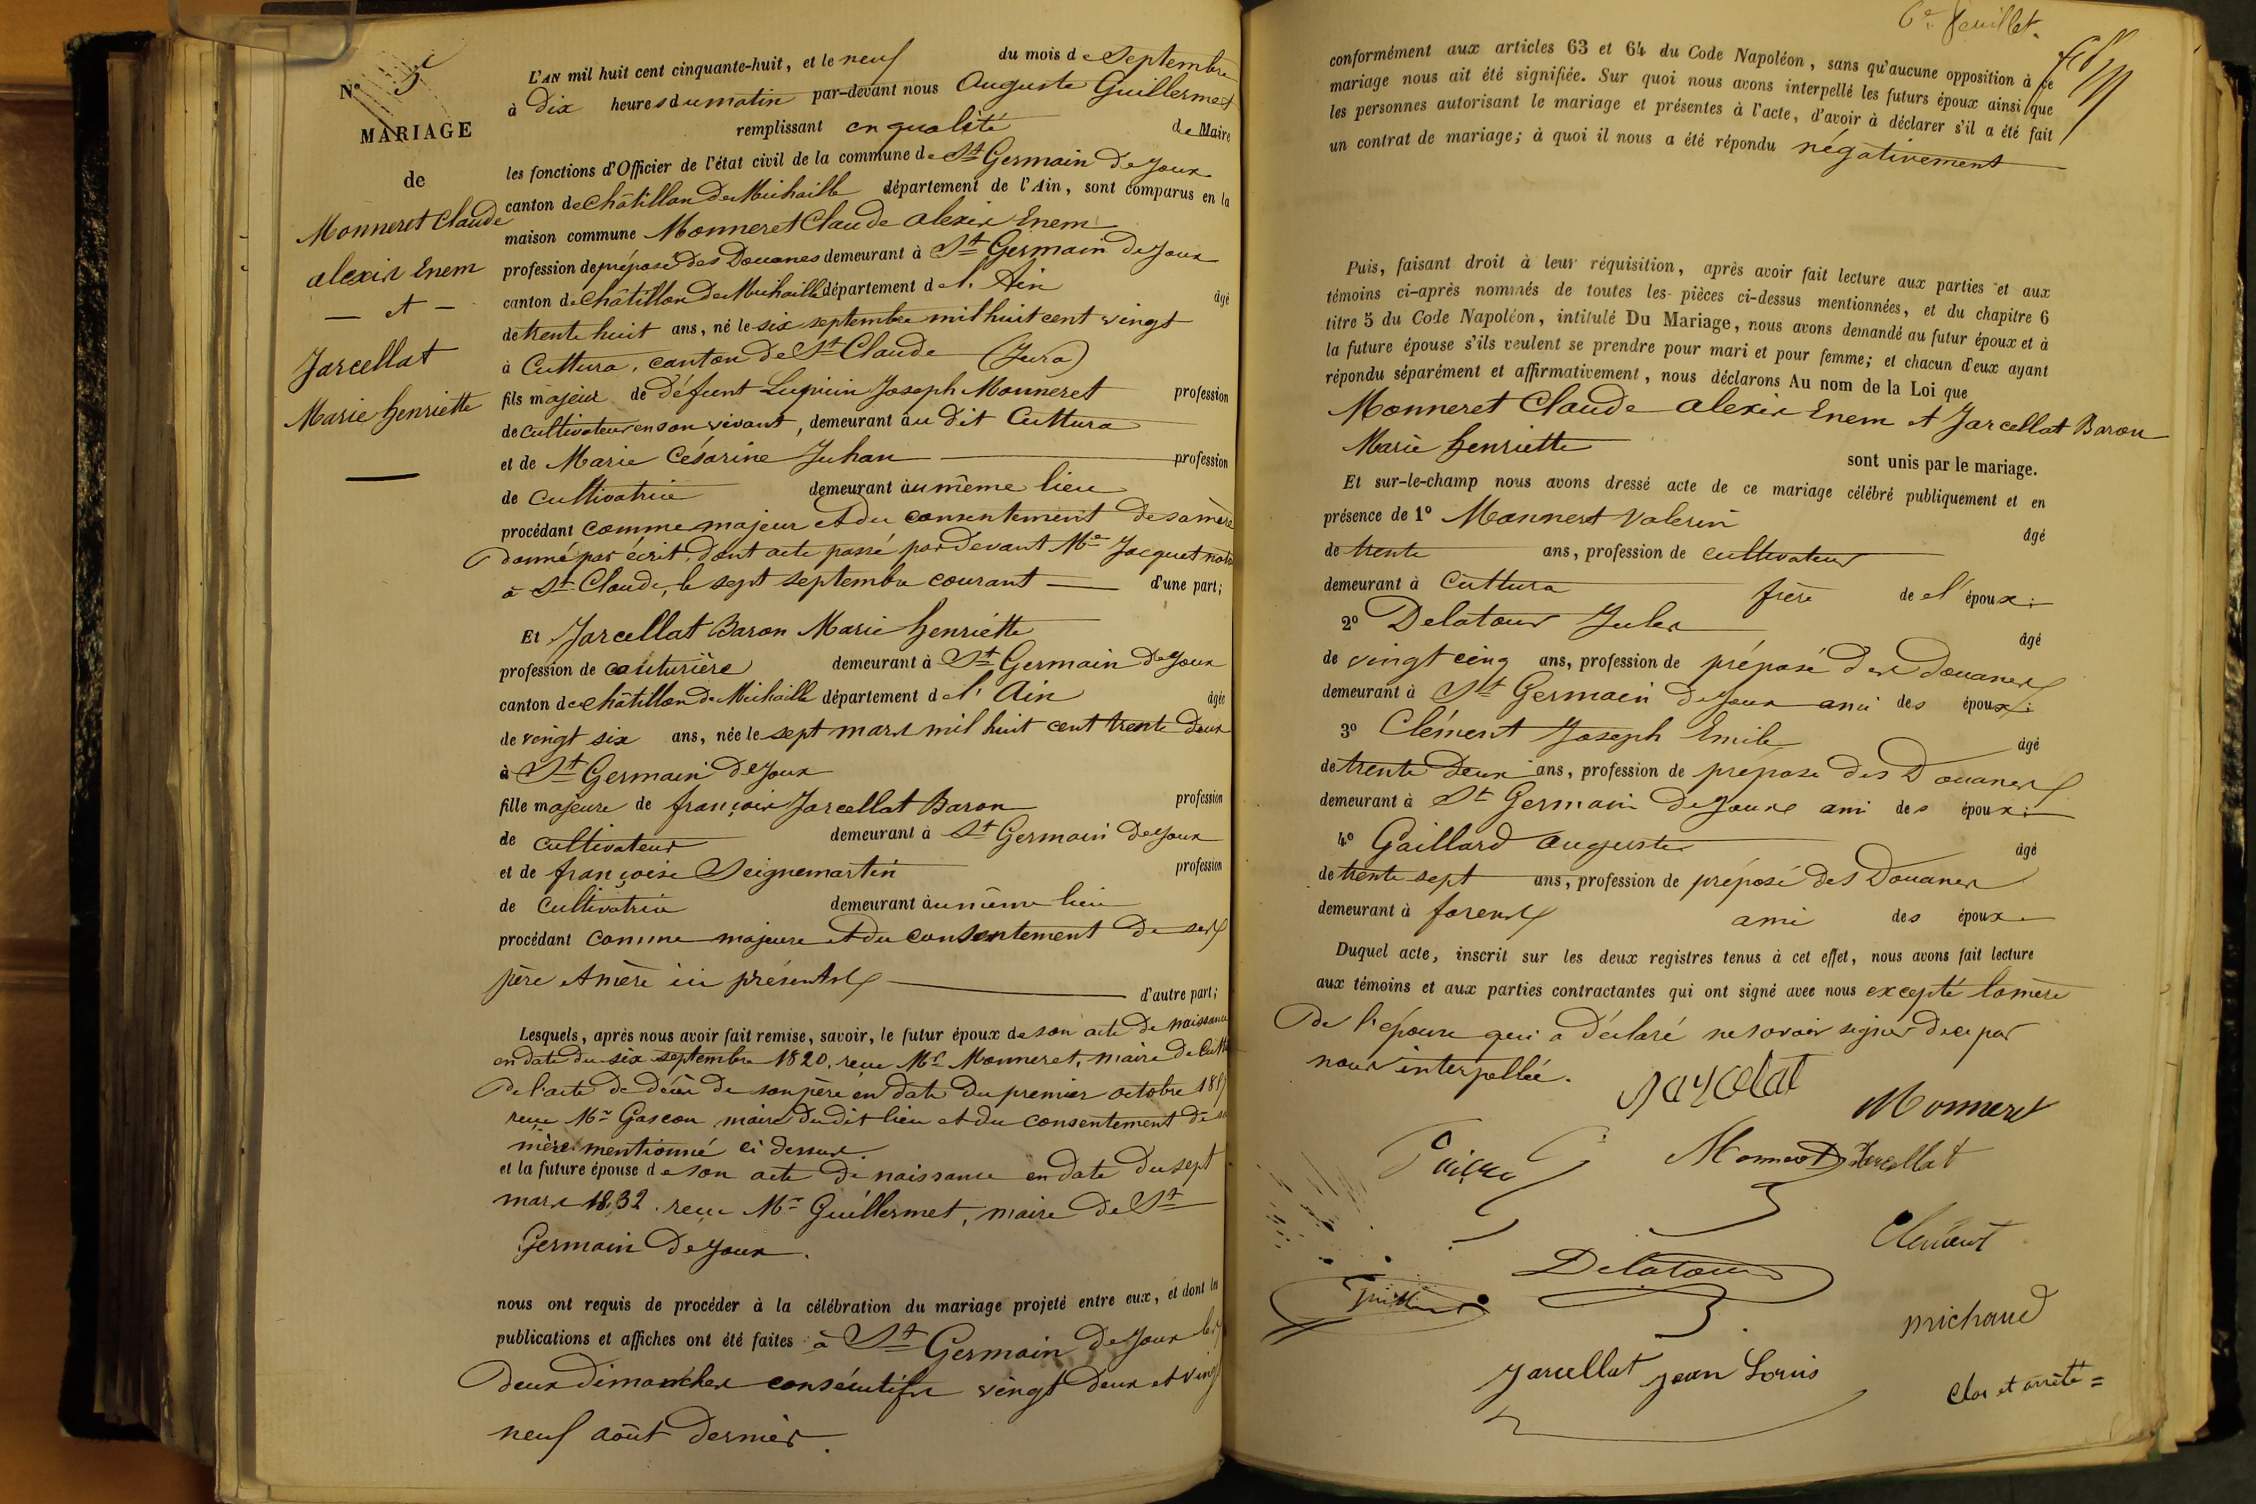 N° 5
MARIAGE
de
Monneret Claude
alexis Enem
— et —
Jarcellat
Marie henriette
L'AN mil huit cent cinquante-huit, et le neuf du mois de Septembre
à Dix heures du matin par-devant nous Auguste Guillermet
remplissant en qualité de Maire
les fonctions d'Officier de l'état civil de la commune de St Germain De Joux
canton de Châtillon De Michaille département de l'Ain, sont comparus en la
maison commune Monneret Claude alexis Enem
profession de préposé des Douanes demeurant à St Germain De Joux
canton de Châtillon De Michaille département de l'Ain âgé
de trente huit ans, né le six septembre mil huit cent vingt
à Cuttura, canton De St Claude (Jura)
fils majeur de défunt Lupicin Joseph Monneret profession
de cultivateur en son vivant, demeurant au dit Cuttura
et de Marie Césarine Juhan profession
de cultivatrice demeurant au même lieu
procédant comme majeur et du consentement de sa mère
donné par écrit, dont acte passé par devant Me Jacquet
à St Claude, le sept septembre courant d'une part;
Et Jarcellat Baron Marie henriette
profession de couturière demeurant à St Germain De Joux
canton de Châtillon De Michaille département de l'Ain âgée
de vingt six ans, née le sept mars mil huit cent trente deux
à St Germain De Joux
fille majeure de françois Jarcellat Baron profession
de cultivateur demeurant à St Germain De Joux
et de françoise Seignemartin profession
de cultivatrice demeurant au même lieu
procédant comme majeure et du consentement de ses
père et mère ici présents d'autre part;
Lesquels, après nous avoir fait remise, savoir, le futur époux de son acte de naissance
en date du six septembre 1820. reçu Mr Monneret, maire de
De l'acte de décès de son père en date du premier octobre
reçu Mr Gascon maire du dit lieu et du consentement de sa
mère mentionné ci dessus.
et la future épouse de son acte de naissance en date du sept
mars 1832. reçu Mr Guillermet, maire de St
Germain De Joux.
nous ont requis de procéder à la célébration du mariage projeté entre eux, et dont les
publications et affiches ont été faites à St Germain De Joux les
Deux dimanches consécutifs vingt deux et vingt
neuf août dernier.
6e feuillet.
conformément aux articles 63 et 64 du Code Napoléon, sans qu'aucune opposition à ce
mariage nous ait été signifiée. Sur quoi nous avons interpellé les futurs époux ainsi que
les personnes autorisant le mariage et présentes à l'acte, d'avoir à déclarer s'il a été fait
un contrat de mariage; à quoi il nous a été répondu négativement
Puis, faisant droit à leur réquisition, après avoir fait lecture aux parties et aux
témoins ci-après nommés de toutes les pièces ci-dessus mentionnées, et du chapitre 6
titre 5 du Code Napoléon, intitulé Du Mariage, nous avons demandé au futur époux et à
la future épouse s'ils veulent se prendre pour mari et pour femme; et chacun d'eux ayant
répondu séparément et affirmativement, nous déclarons Au nom de la Loi que
Monneret Claude alexis Enem et Jarcellat Baron
Marie henriette sont unis par le mariage.
Et sur-le-champ nous avons dressé acte de ce mariage célébré publiquement et en
présence de 1° Monneret Valerin âgé
de trente ans, profession de cultivateur
demeurant à Cuttura frère de l'époux;
2° Delatour Jules âgé
de vingt cinq ans, profession de préposé des Douanes
demeurant à St Germain De Joux ami des époux;
3° Clément Joseph Emile âgé
de trente deux ans, profession de préposé des Douanes
demeurant à St Germain De Joux ami des époux;
4° Gaillard auguste âgé
de trente sept ans, profession de préposé des Douanes
demeurant à forens ami des époux.
Duquel acte, inscrit sur les deux registres tenus à cet effet, nous avons fait lecture
aux témoins et aux parties contractantes qui ont signé avec nous excepté la mère
De l'épouse qui a déclaré ne savoir signer de ce par
nous interpellée.
Monneret
Monneret Jarcellat
Clément
Delatour
michaud
Jarcellat jean Louis
Clos et arrêté =